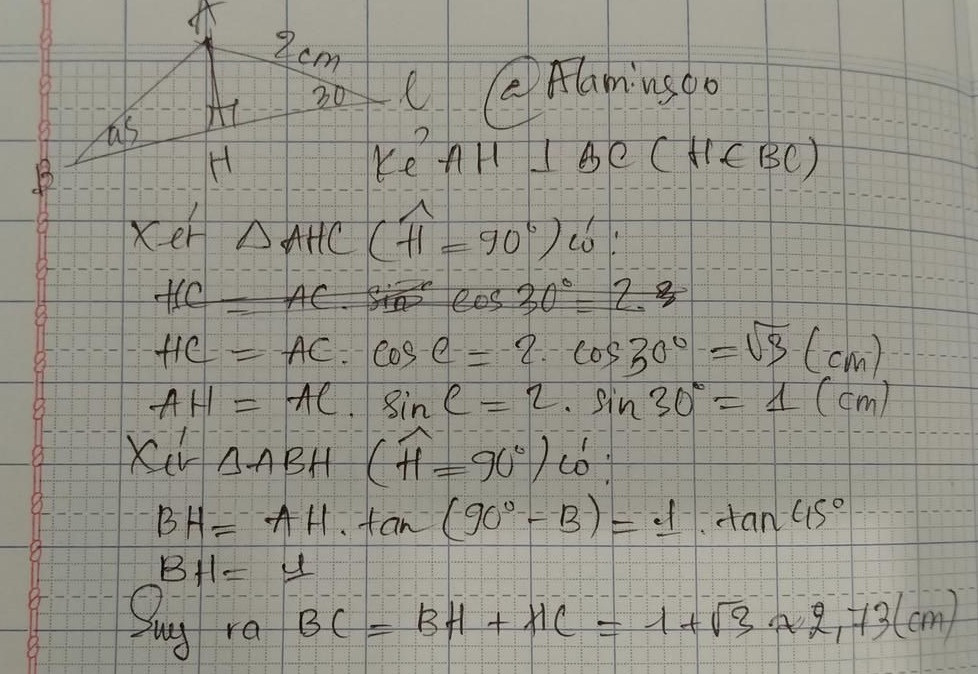 A
2cm
30
C
45
H
B
@Alamin500
Kẻ AH ⊥ BC (H ∈ BC)
Xét ΔAHC (Ĥ = 90°) có:
HC = AC. sin cos 30° = 2.
HC = AC. cos C = 2. cos30° = √3 (cm)
AH = AC. sin C = 2. sin 30° = 1 (cm)
Xét ΔABH (Ĥ = 90°) có:
BH = AH. tan (90° - B) = 1. tan 45°
BH = 1
Suy ra BC = BH + HC = 1 + √3 ≈ 2,73(cm)